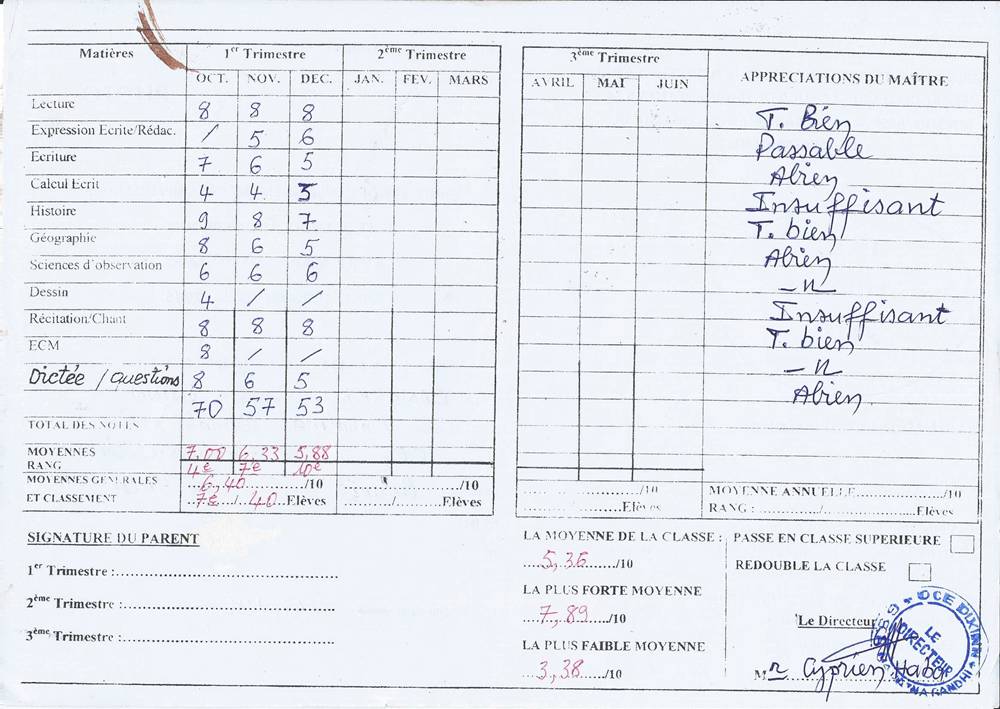 Matières 1er Trimestre 2ème Trimestre 3ème Trimestre APPRECIATIONS DU MAÎTRE
OCT. NOV. DEC. JAN. FEV. MARS AVRIL MAI JUIN
Lecture 8 8 8 T. Bien
Expression Ecrite/Rédac. / 5 6 Passable
Ecriture 7 6 5 Abien
Calcul Ecrit 4 4 3 Insuffisant
Histoire 9 8 7 T. bien
Géographie 8 6 5 Abien
Sciences d'observation 6 6 6 -"-
Dessin 4 / / Insuffisant
Récitation/Chant 8 8 8 T. bien
ECM 8 / / -"-
Dictée / questions 8 6 5 Abien
70 57 53
TOTAL DES NOTES
MOYENNES 7,00 6,33 5,88
RANG 4e 7e 10e
MOYENNES GENERALES ..6,40......../10 ......................./10 ......................./10 MOYENNE ANNUELLE................/10
ET CLASSEMENT ..7e../..40...Elèves ........../..........Elèves ......................Elèves RANG : ............../......................Elèves
SIGNATURE DU PARENT
1er Trimestre :..................................................
2ème Trimestre :................................................
3ème Trimestre :................................................
LA MOYENNE DE LA CLASSE :
....5,36......../10
LA PLUS FORTE MOYENNE
....7,89....../10
LA PLUS FAIBLE MOYENNE
...3,38....../10
PASSE EN CLASSE SUPERIEURE
REDOUBLE LA CLASSE
Le Directeur
LE DIRECTEUR
Mr Cyprien